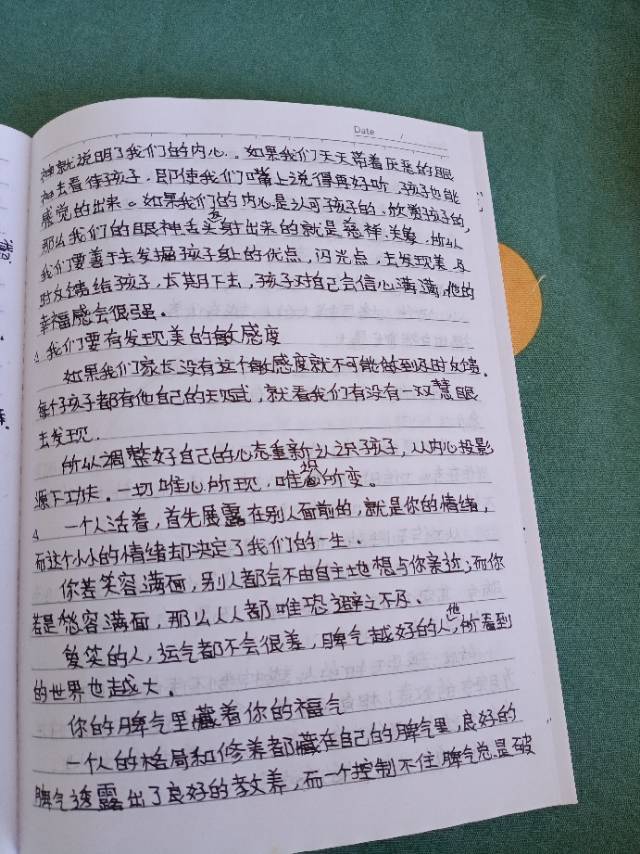 Date /
神就说明了我们的内心。如果我们天天带着厌恶的眼
神去看待孩子，即使我们嘴上说得再好听，孩子也能
感觉的出来。如果我们的内心是认可孩子的，欣赏孩子的，
那么我们的眼神去反射出来的就是慈祥、关爱，所以
我们要善于去发掘孩子身上的优点，闪光点，去发现美及
时反馈给孩子，长期下去，孩子对自己会信心满满，他的
幸福感会很强。
我们要有发现美的敏感度
如果我们家长没有这个敏感度就不可能做到及时反馈。
每个孩子都有他自己的天赋，就看我们有没有一双慧眼
去发现。
所以调整好自己的心态重新认识孩子，从内心投影
源下功夫。一切唯心所现，唯识所变。
4. 一个人活着，首先展露在别人面前的，就是你的情绪，
而这个小小的情绪却决定了我们的一生。
你若笑容满面，别人都会不由自主地想与你亲近；而你
若是愁容满面，那么人人都唯恐避之不及。
爱笑的人，运气都不会很差，脾气越好的人，他所看到
的世界也越大。
你的脾气里藏着你的福气
一个人的格局和修养都藏在自己的脾气里，良好的
脾气透露出了良好的教养，而一个控制不住脾气总是破